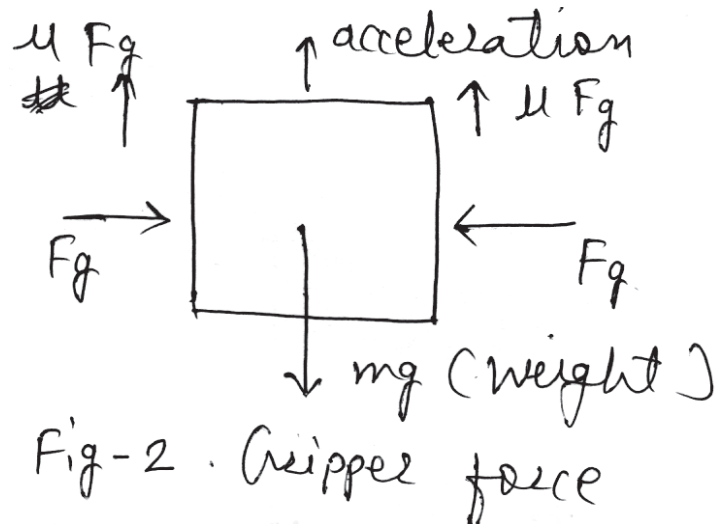 μ Fg
acceleration
μ Fg
Fg
Fg
mg (weight)
Fig-2. Gripper force